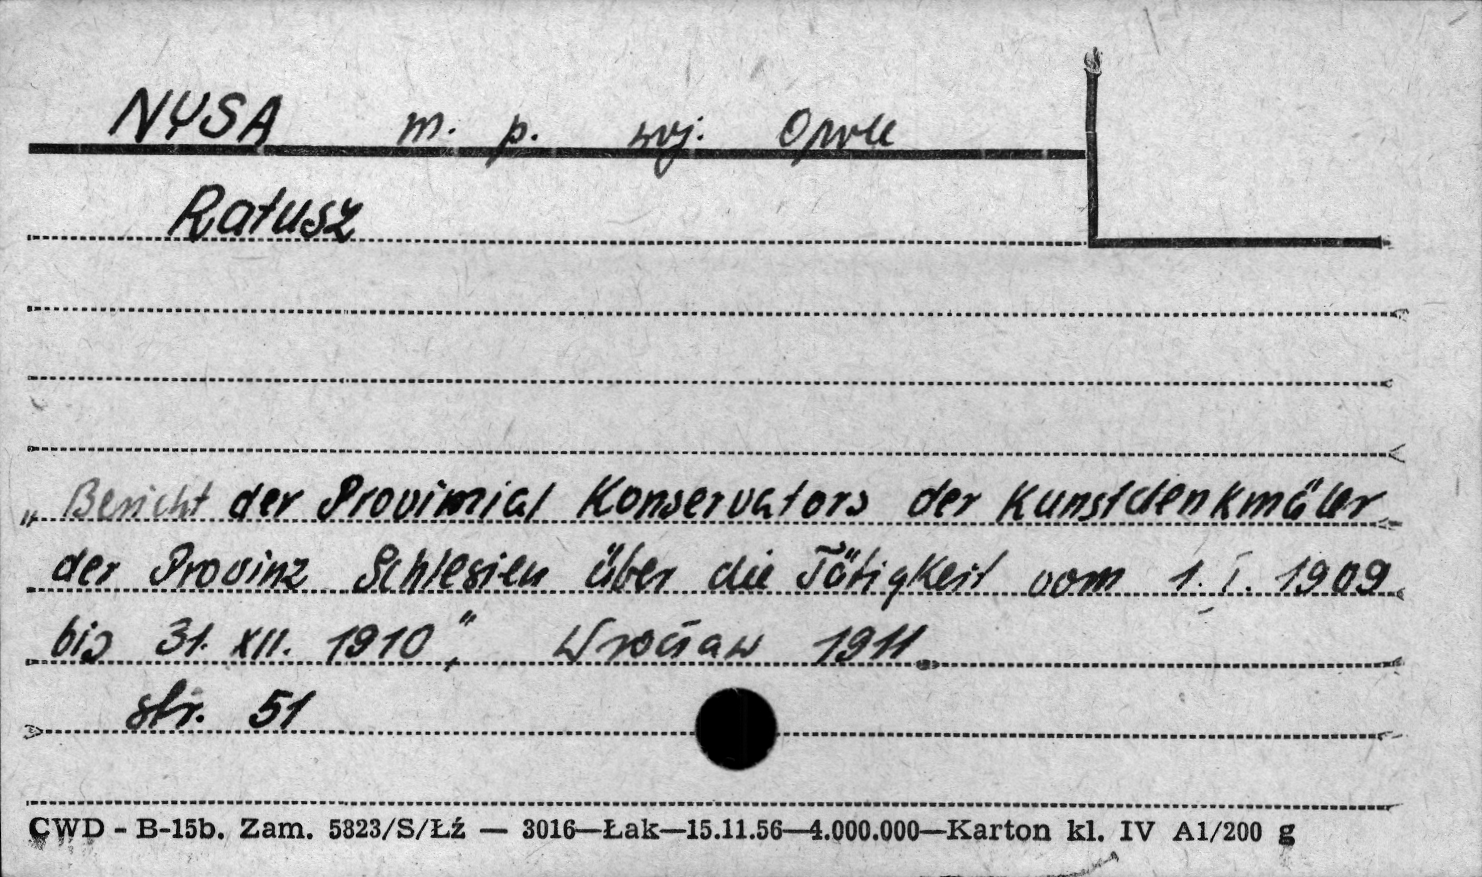 NYSA m. p. woj. Opole
Ratusz
„Bericht der Provinzial Konservators der Kunstdenkmäler
der Provinz Schlesien über die Tätigkeit vom 1. I. 1909
bis 31. XII. 1910”, Wrocław 1911.
str. 51
CWD - B-15b. Zam. 5823/S/Łź — 3016—Łak—15.11.56—4.000.000—Karton kl. IV A1/200 g